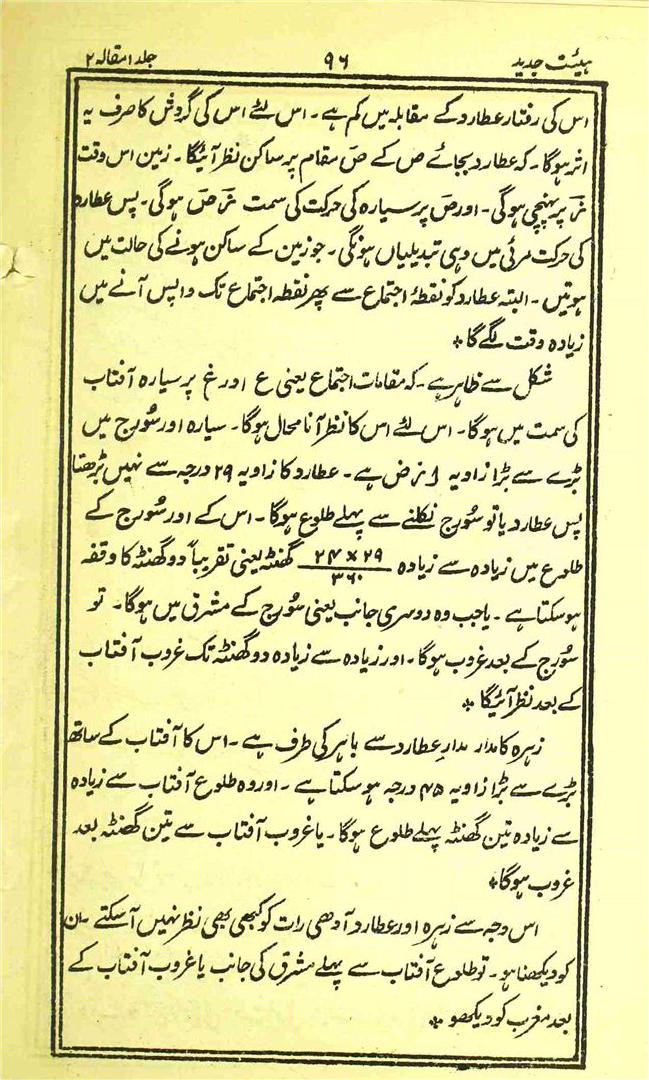 ہیئت جدید ۹۶ جلد ۱ مقالہ ۲
اس کی رفتار عطارد کے مقابلہ میں کم ہے۔ اس لئے اس کی گردش کا صرف یہ
اثر ہوگا۔ کہ عطارد بجائے ص کے صَ مقام پر ساکن نظر آئیگا۔ زمین اس وقت
پر پہنچی ہوگی۔ اور صَ پر سیارہ کی حرکت کی سمت صَ ہوگی۔ پس عطارد
کی حرکت مرئی میں وہی تبدیلیاں ہونگی۔ جو زمین کے ساکن ہونے کی حالت میں
ہوتیں۔ البتہ عطارد کو نقطۂ اجتماع سے پھر نقطہ اجتماع تک واپس آنے میں
زیادہ وقت لگے گا *
شکل سے ظاہر ہے۔ کہ مقامات اجتماع یعنی ع اور غ پر سیارہ آفتاب
کی سمت میں ہوگا۔ اس لئے اس کا نظر آنا محال ہوگا۔ سیارہ اور سُورج میں
بڑے سے بڑا زاویہ ا ز ض ہے۔ عطارد کا زاویہ ۲۹ درجہ سے نہیں بڑھتا
پس عطارد یا تو سُورج نکلنے سے پہلے طلوع ہوگا۔ اس کے اور سُورج کے
طلوع میں زیادہ سے زیادہ ۲۴×۲۹/۳۶۰ گھنٹہ یعنی تقریباً دو گھنٹہ کا وقفہ
ہو سکتا ہے۔ یا جب وہ دوسری جانب یعنی سُورج کے مشرق میں ہوگا۔ تو
سُورج کے بعد غروب ہوگا۔ اور زیادہ سے زیادہ دو گھنٹہ تک غروب آفتاب
کے بعد نظر آئیگا *
زہرہ کا مدار مدارِ عطارد سے باہر کی طرف ہے۔ اس کا آفتاب کے ساتھ
بڑے سے بڑا زاویہ ۴۵ درجہ ہو سکتا ہے۔ اور وہ طلوع آفتاب سے زیادہ
سے زیادہ تین گھنٹہ پہلے طلوع ہوگا۔ یا غروب آفتاب سے تین گھنٹہ بعد
غروب ہوگا *
اس وجہ سے زہرہ اور عطارد آدھی رات کو کبھی بھی نظر نہیں آ سکتے۔ ان
کو دیکھنا ہو۔ تو طلوع آفتاب سے پہلے مشرق کی جانب یا غروب آفتاب کے
بعد مغرب کو دیکھو *